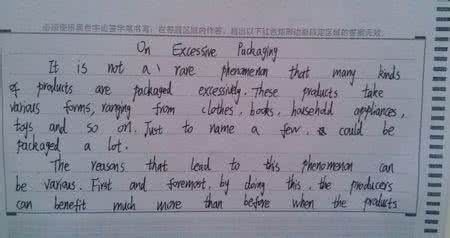 必须使用黑色字迹签字笔书写,在答题区域内作答,超出以下红色矩形边框限定区域的答案无效。
On Excessive Packaging
It is not a rare phenomenon that many kinds
of products are packaged excessively. These products take
various forms, ranging from clothes, books, household appliances,
toys and so on. Just to name a few. could be
packaged a lot.
The reasons that lead to this phenomenon can
be various. First and foremost, by doing this, the producers
can benefit much more than before when the products